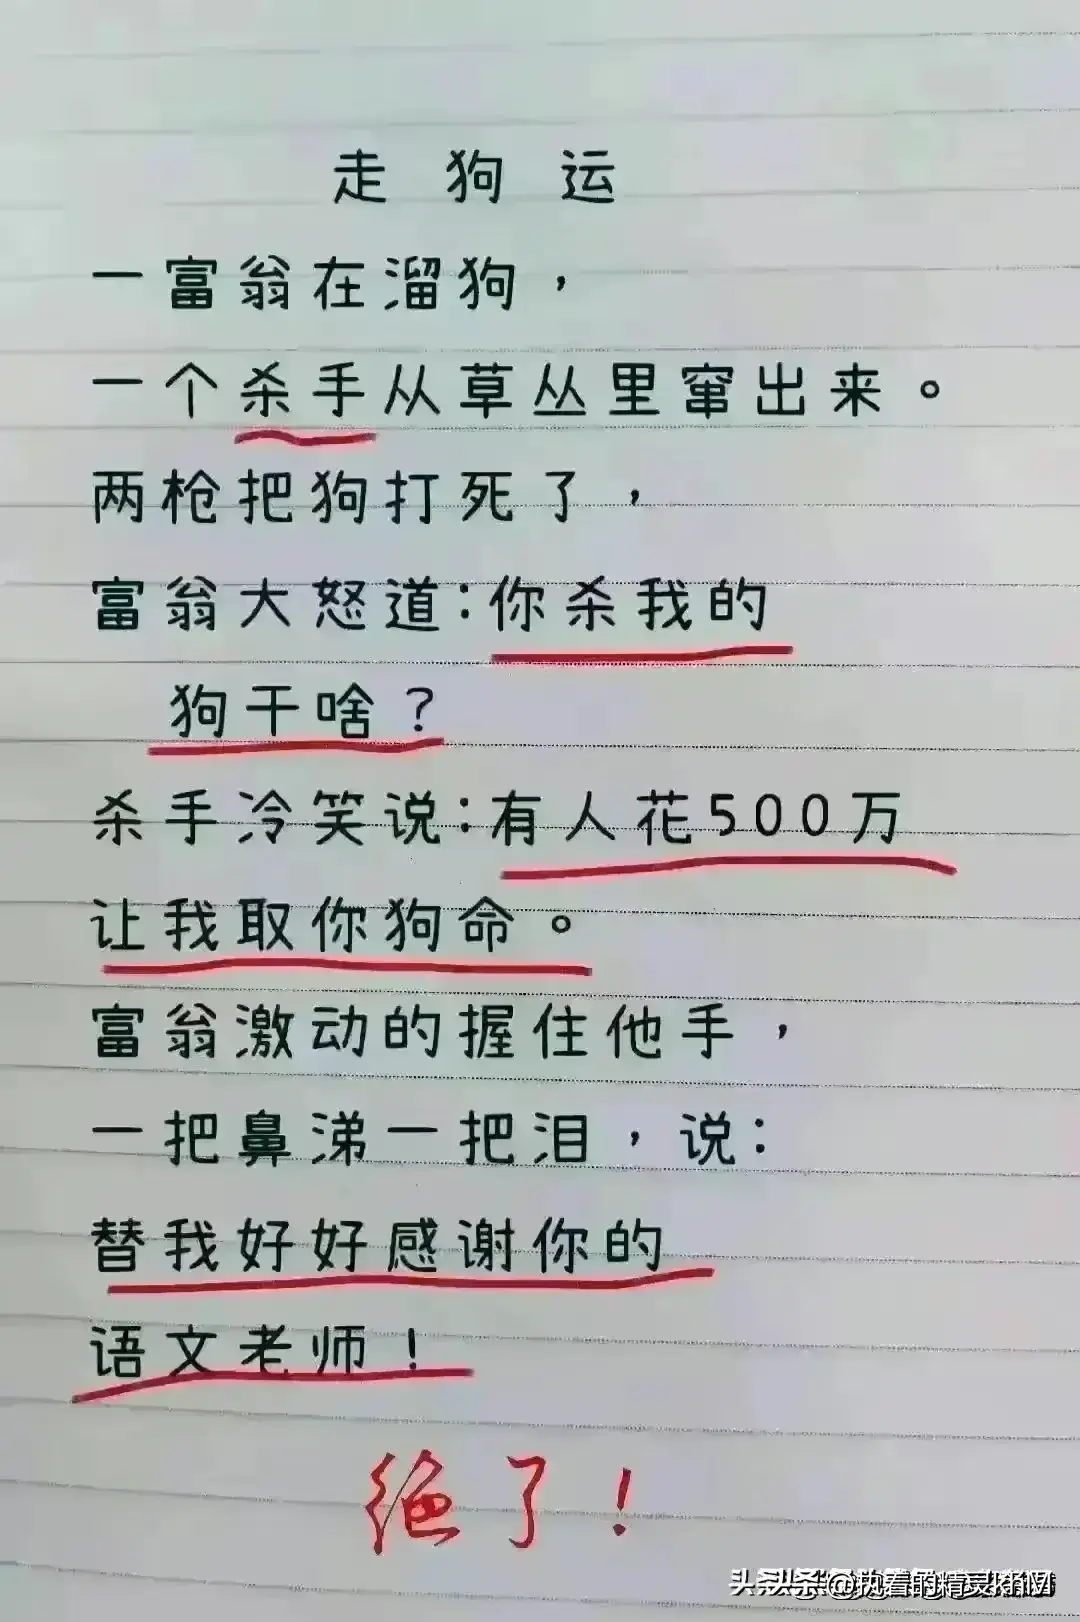 走狗运
一富翁在溜狗，
一个杀手从草丛里窜出来。
两枪把狗打死了，
富翁大怒道:你杀我的
狗干啥?
杀手冷笑说:有人花500万
让我取你狗命。
富翁激动的握住他手，
一把鼻涕一把泪，说:
替我好好感谢你的
语文老师!
绝了!